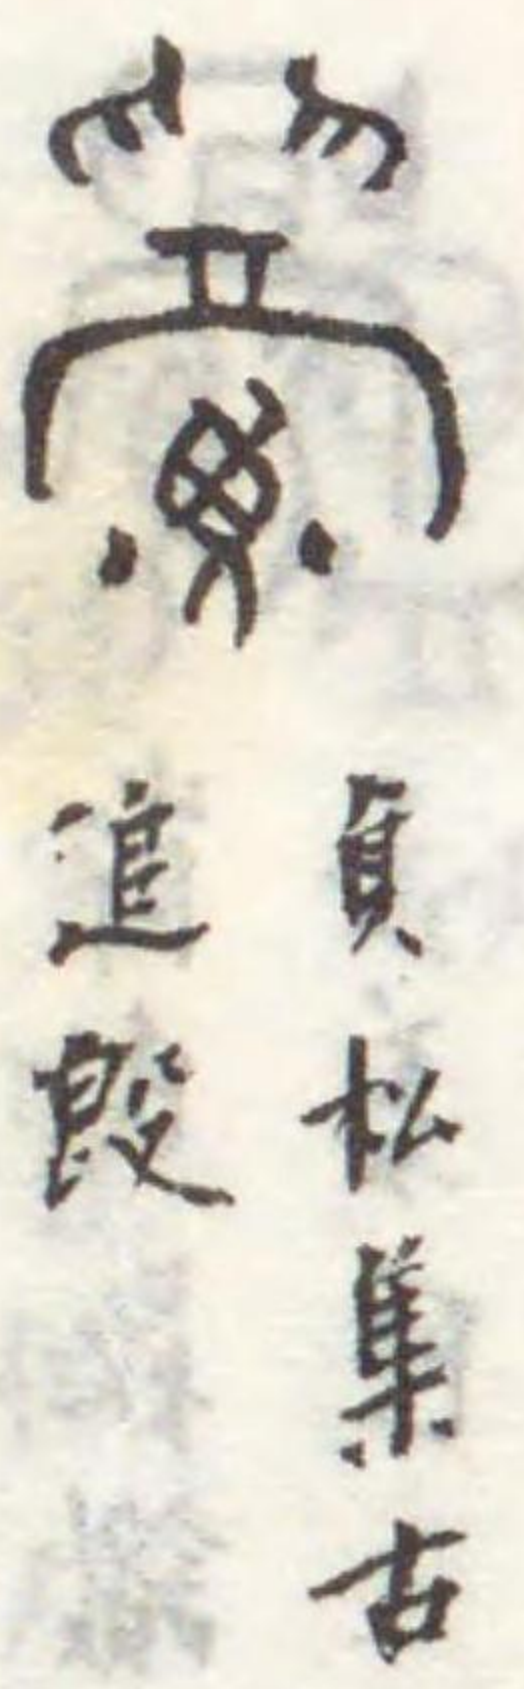 貞松集古
追𣪘